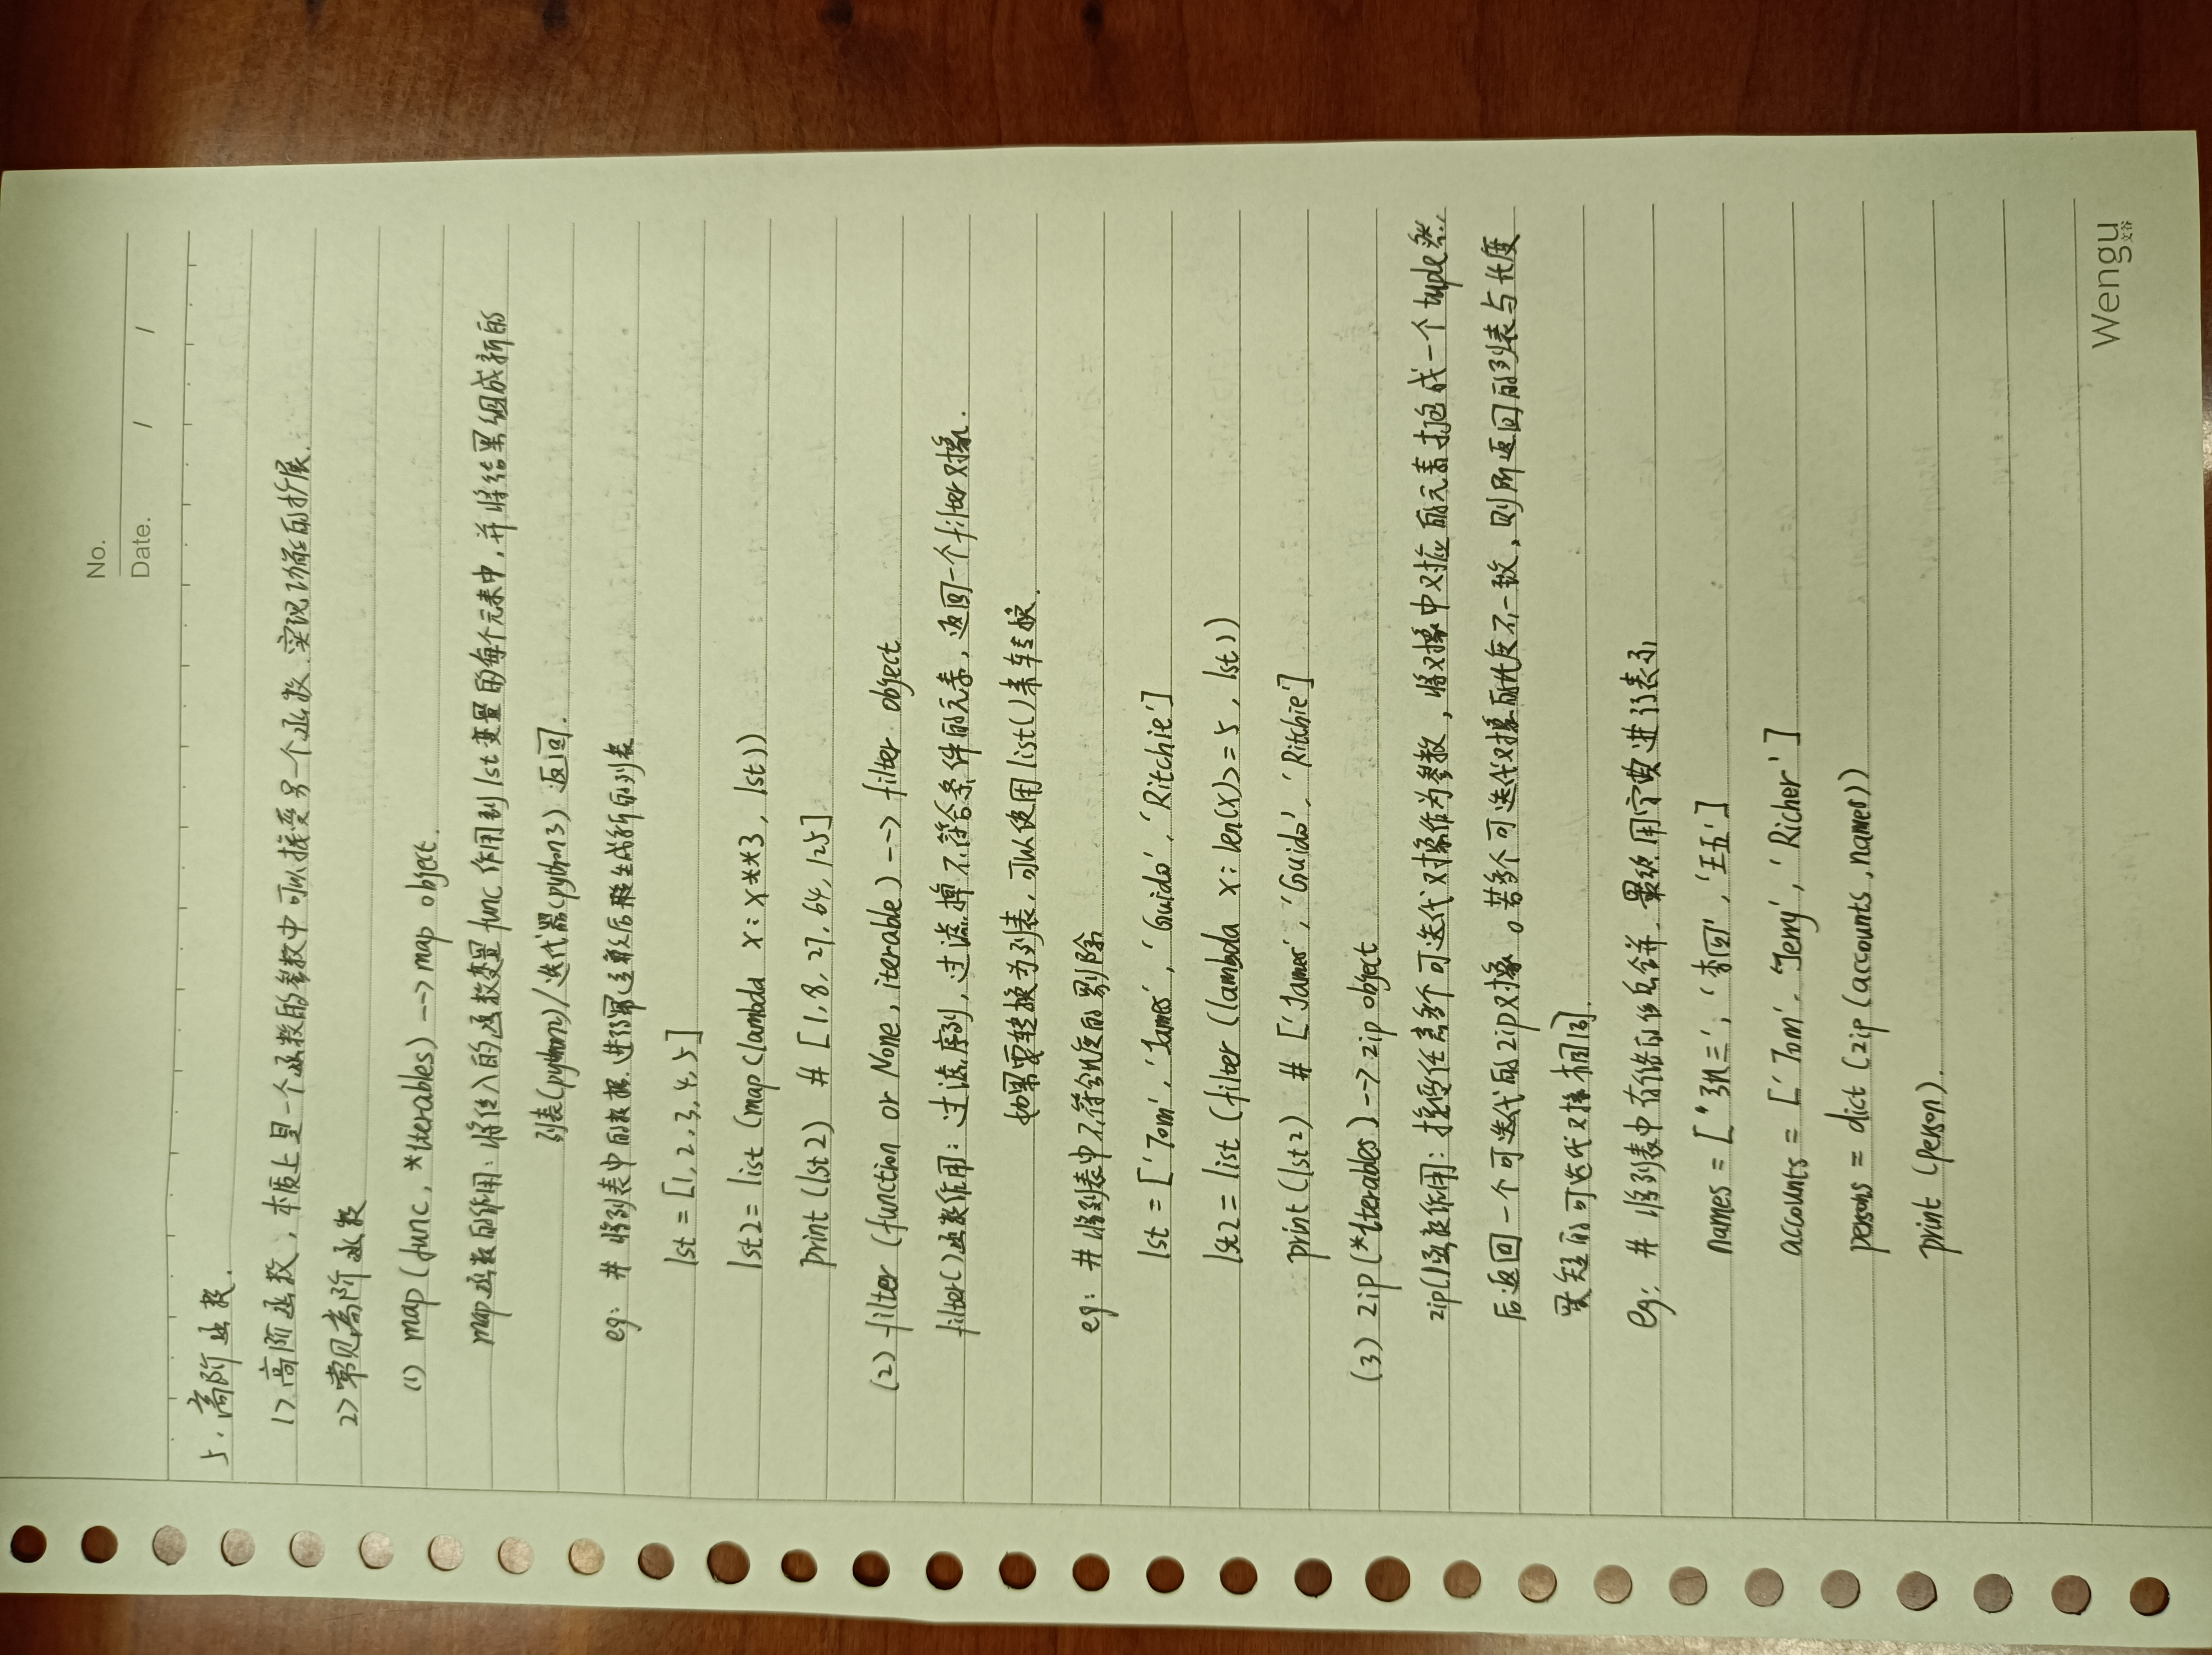 No.
Date. / /
5. 高阶函数.
1> 高阶函数, 本质上是一个函数的参数中可以接受另一个函数. 实现功能的扩展.
2> 常见高阶函数
(1) map(func, *iterables) --> map object.
map函数的作用: 将传入的函数变量func作用到lst变量的每个元素中, 并将结果组成新的
列表(python2)/迭代器(python3) 返回.
eg: # 将列表中的数据. 进行幂运算后生成新的列表
lst = [1, 2, 3, 4, 5]
lst2 = list (map(lambda x: x**3, lst))
print (lst2) # [1, 8, 27, 64, 125]
(2) filter (function or None, iterable) --> filter object
filter()函数作用: 过滤序列, 过滤掉不符合条件的元素, 返回一个filter对象.
如果要转换为列表, 可以使用list()来转换.
eg: # 将列表中不符合长度的剔除
lst = ['Tom', 'James', 'Guido', 'Ritchie']
lst2 = list (filter (lambda x: len(x)>=5, lst))
print (lst2) # ['James', 'Guido', 'Ritchie']
(3) zip(*iterables) --> zip object
zip()函数作用: 接受任意多个可迭代对象作为参数, 将对象中对应的元素打包成一个tuple然
后返回一个可迭代的zip对象。若多个可迭代对象的长度不一致, 则所返回的列表与长度
最短的可迭代对象相同.
eg: # 将列表中存储的信息合并. 最终用字典进行表示
names = ['张三', '李四', '王五']
accounts = ['Tom', 'Jerry', 'Richer']
persons = dict (zip (accounts, names))
print (person).
Wengu
文谷